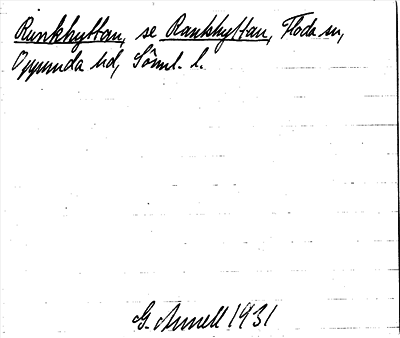 Runkhyttan, se Rankhyttan, Floda sn,
Oppunda hd, Söml. l.
G. Annell 1931